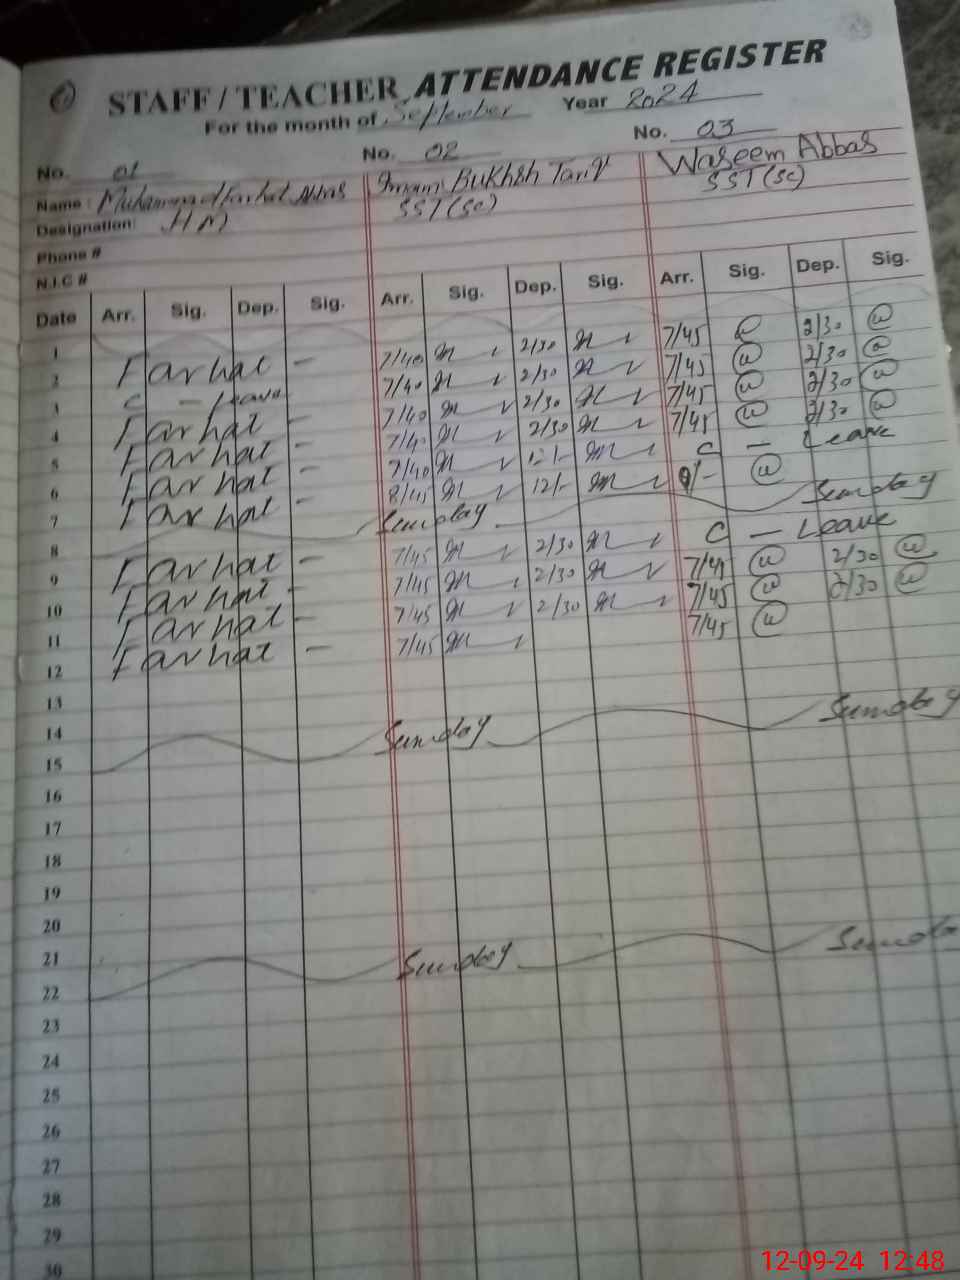 STAFF / TEACHER ATTENDANCE REGISTER
For the month of September Year 2024
No. 01 No. 02 No. 03
Name: Muhammad Farhat Abbas Imam Bukhsh Tariq Waseem Abbas
Designation: HM SST(Sc) SST(Sc)
Phone #
N.I.C #
Date Arr. Sig. Dep. Sig. Arr. Sig. Dep. Sig. Arr. Sig. Dep. Sig.
1
2 Farhat - 7/40 2/30 7/45 2/30
3 C - Leave 7/40 2/30 7/45 2/30
4 Farhat - 7/40 2/30 7/45 2/30
5 Farhat - 7/40 2/30 7/45 2/30
6 Farhat - 7/40 12/- C - Leave
7 Farhat - 8/45 12/-
8 Sunday Sunday
9 Farhat - 7/45 2/30 C - Leave
10 Farhat - 7/45 2/30 7/45 2/30
11 Farhat - 7/45 2/30 7/45 2/30
12 Farhat - 7/45 7/45
13
14
15 Sunday Sunday
16
17
18
19
20
21
22 Sunday
23
24
25
26
27
28
29
30
12-09-24 12:48